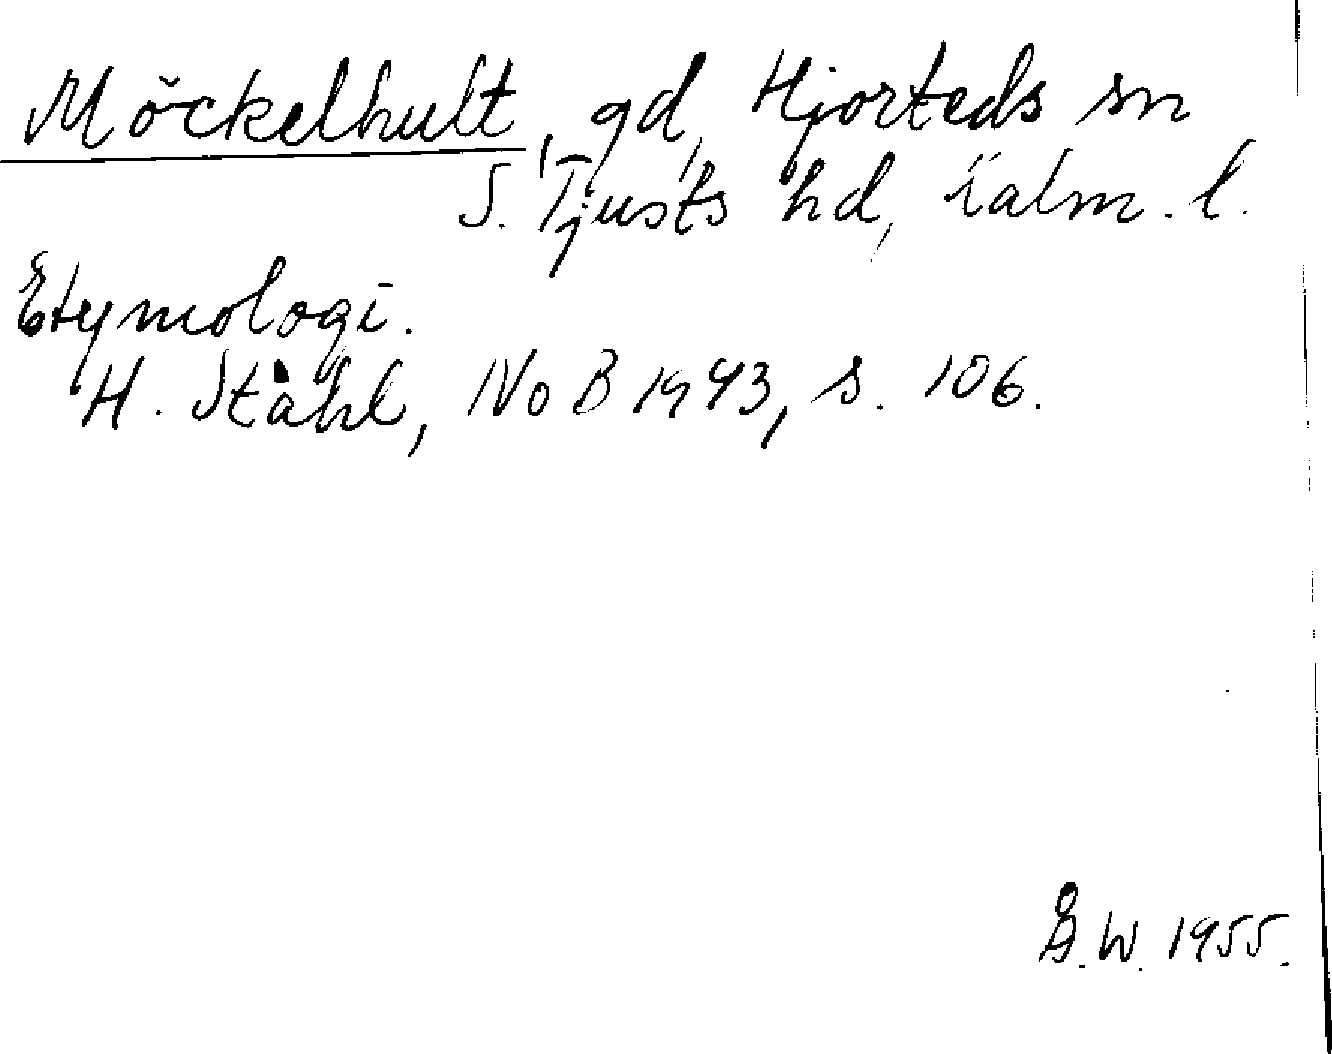 Möckelhult, gd, Hjorteds sn
S. Tjusts hd, Kalm. l.
Etymologi.
H. Ståhl, NoB 1943, s. 106.
Å.W. 1955.